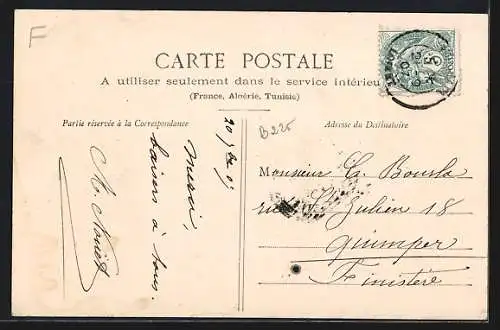 F
CARTE POSTALE
A utiliser seulement dans le service intérieu
(France, Algérie, Tunisie)
Partie réservée à la Correspondance
Adresse du Destinataire
B225
Merci,
baisers à tous.
Monsieur
rue St Julien 18
Quimper
Finistère